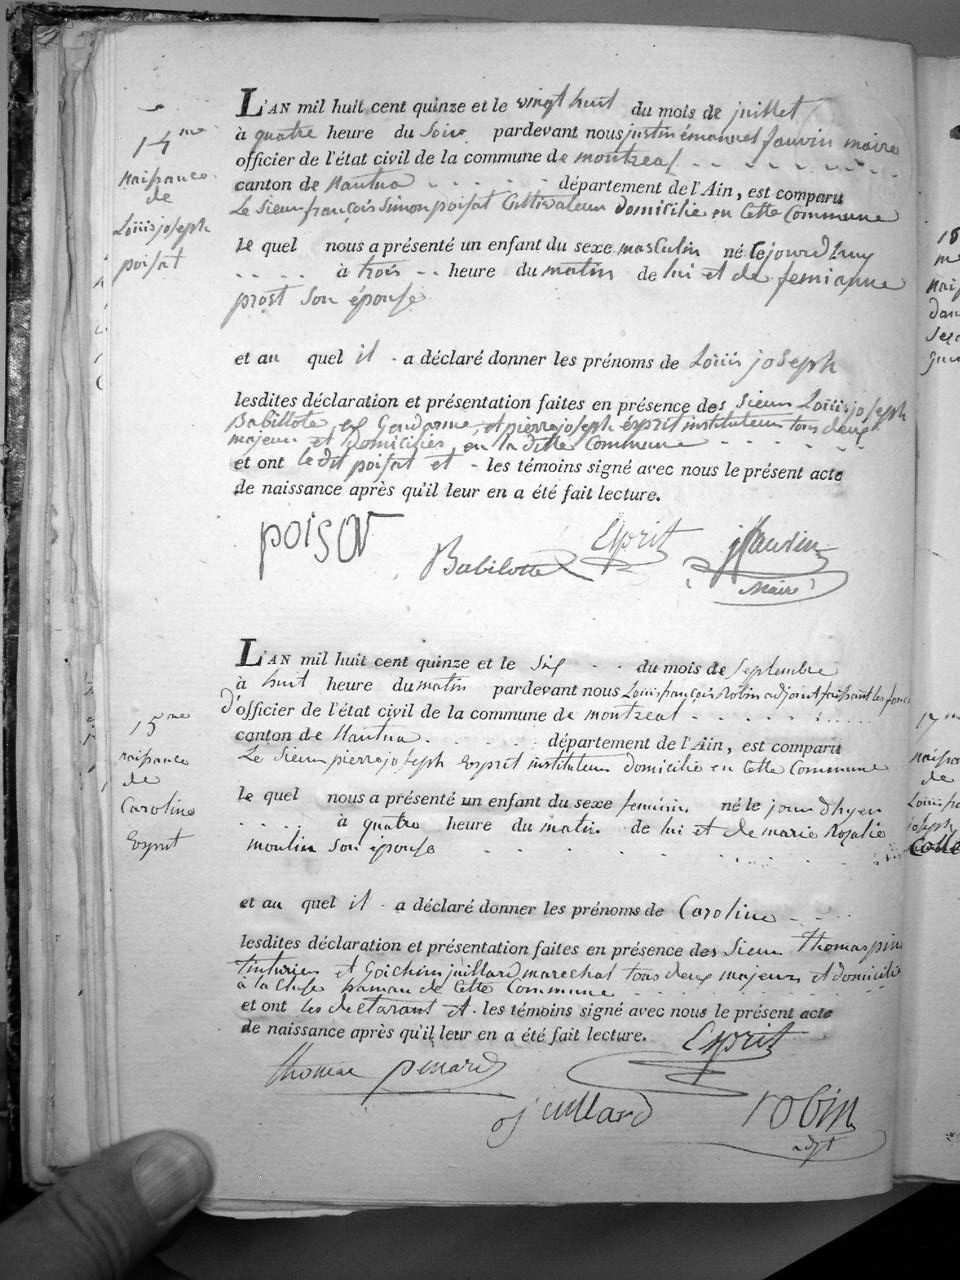 14me
naissance
de
Loüis joseph
poisat
L'AN mil huit cent quinze et le vingt huit du mois de juillet
à quatre heure du soir pardevant nous justin émanuel jauvin maire
officier de l'état civil de la commune de montreal
canton de Nantua département de l'Ain, est comparu
Le Sieur françois Simon poisat Cultivateur domicilié en Cette Commune
le quel nous a présenté un enfant du sexe masculin né le jourd'huy
à trois heure du matin de lui et de
prost Son épouse
et au quel il a déclaré donner les prénoms de Loüis joseph
lesdites déclaration et présentation faites en présence des Sieurs Loüis joseph
Babillote Gendarme, et pierre joseph ésprit instituteur tous deux
majeurs et domiciliés en la ditte Commune
et ont le dit poisat et les témoins signé avec nous le présent acte
de naissance après qu'il leur en a été fait lecture.
poisat
Babilotte Esprit jauvin
Maire
15me
naissance
de
Caroline
Esprit
L'AN mil huit cent quinze et le six du mois de Septembre
à huit heure du matin pardevant nous Loüis françois Robin adjoint faissant les fonc
d'officier de l'état civil de la commune de montreal
canton de Nantua département de l'Ain, est comparu
Le Sieur pierre joseph Esprit instituteur domicilié en Cette Commune
le quel nous a présenté un enfant du sexe feminin né le jour d'hyer
à quatre heure du matin de lui et de marie Rozalie
moulin Son épouse
et au quel il a déclaré donner les prénoms de Caroline
lesdites déclaration et présentation faites en présence des Sieurs thomas
tinturier et juillard marechal tous deux majeurs et domicilié
à la Cluse hamau de Cette Commune
et ont les declarant et les témoins signé avec nous le présent acte
de naissance après qu'il leur en a été fait lecture.
Esprit
thomas penard
juillard robin
adjt